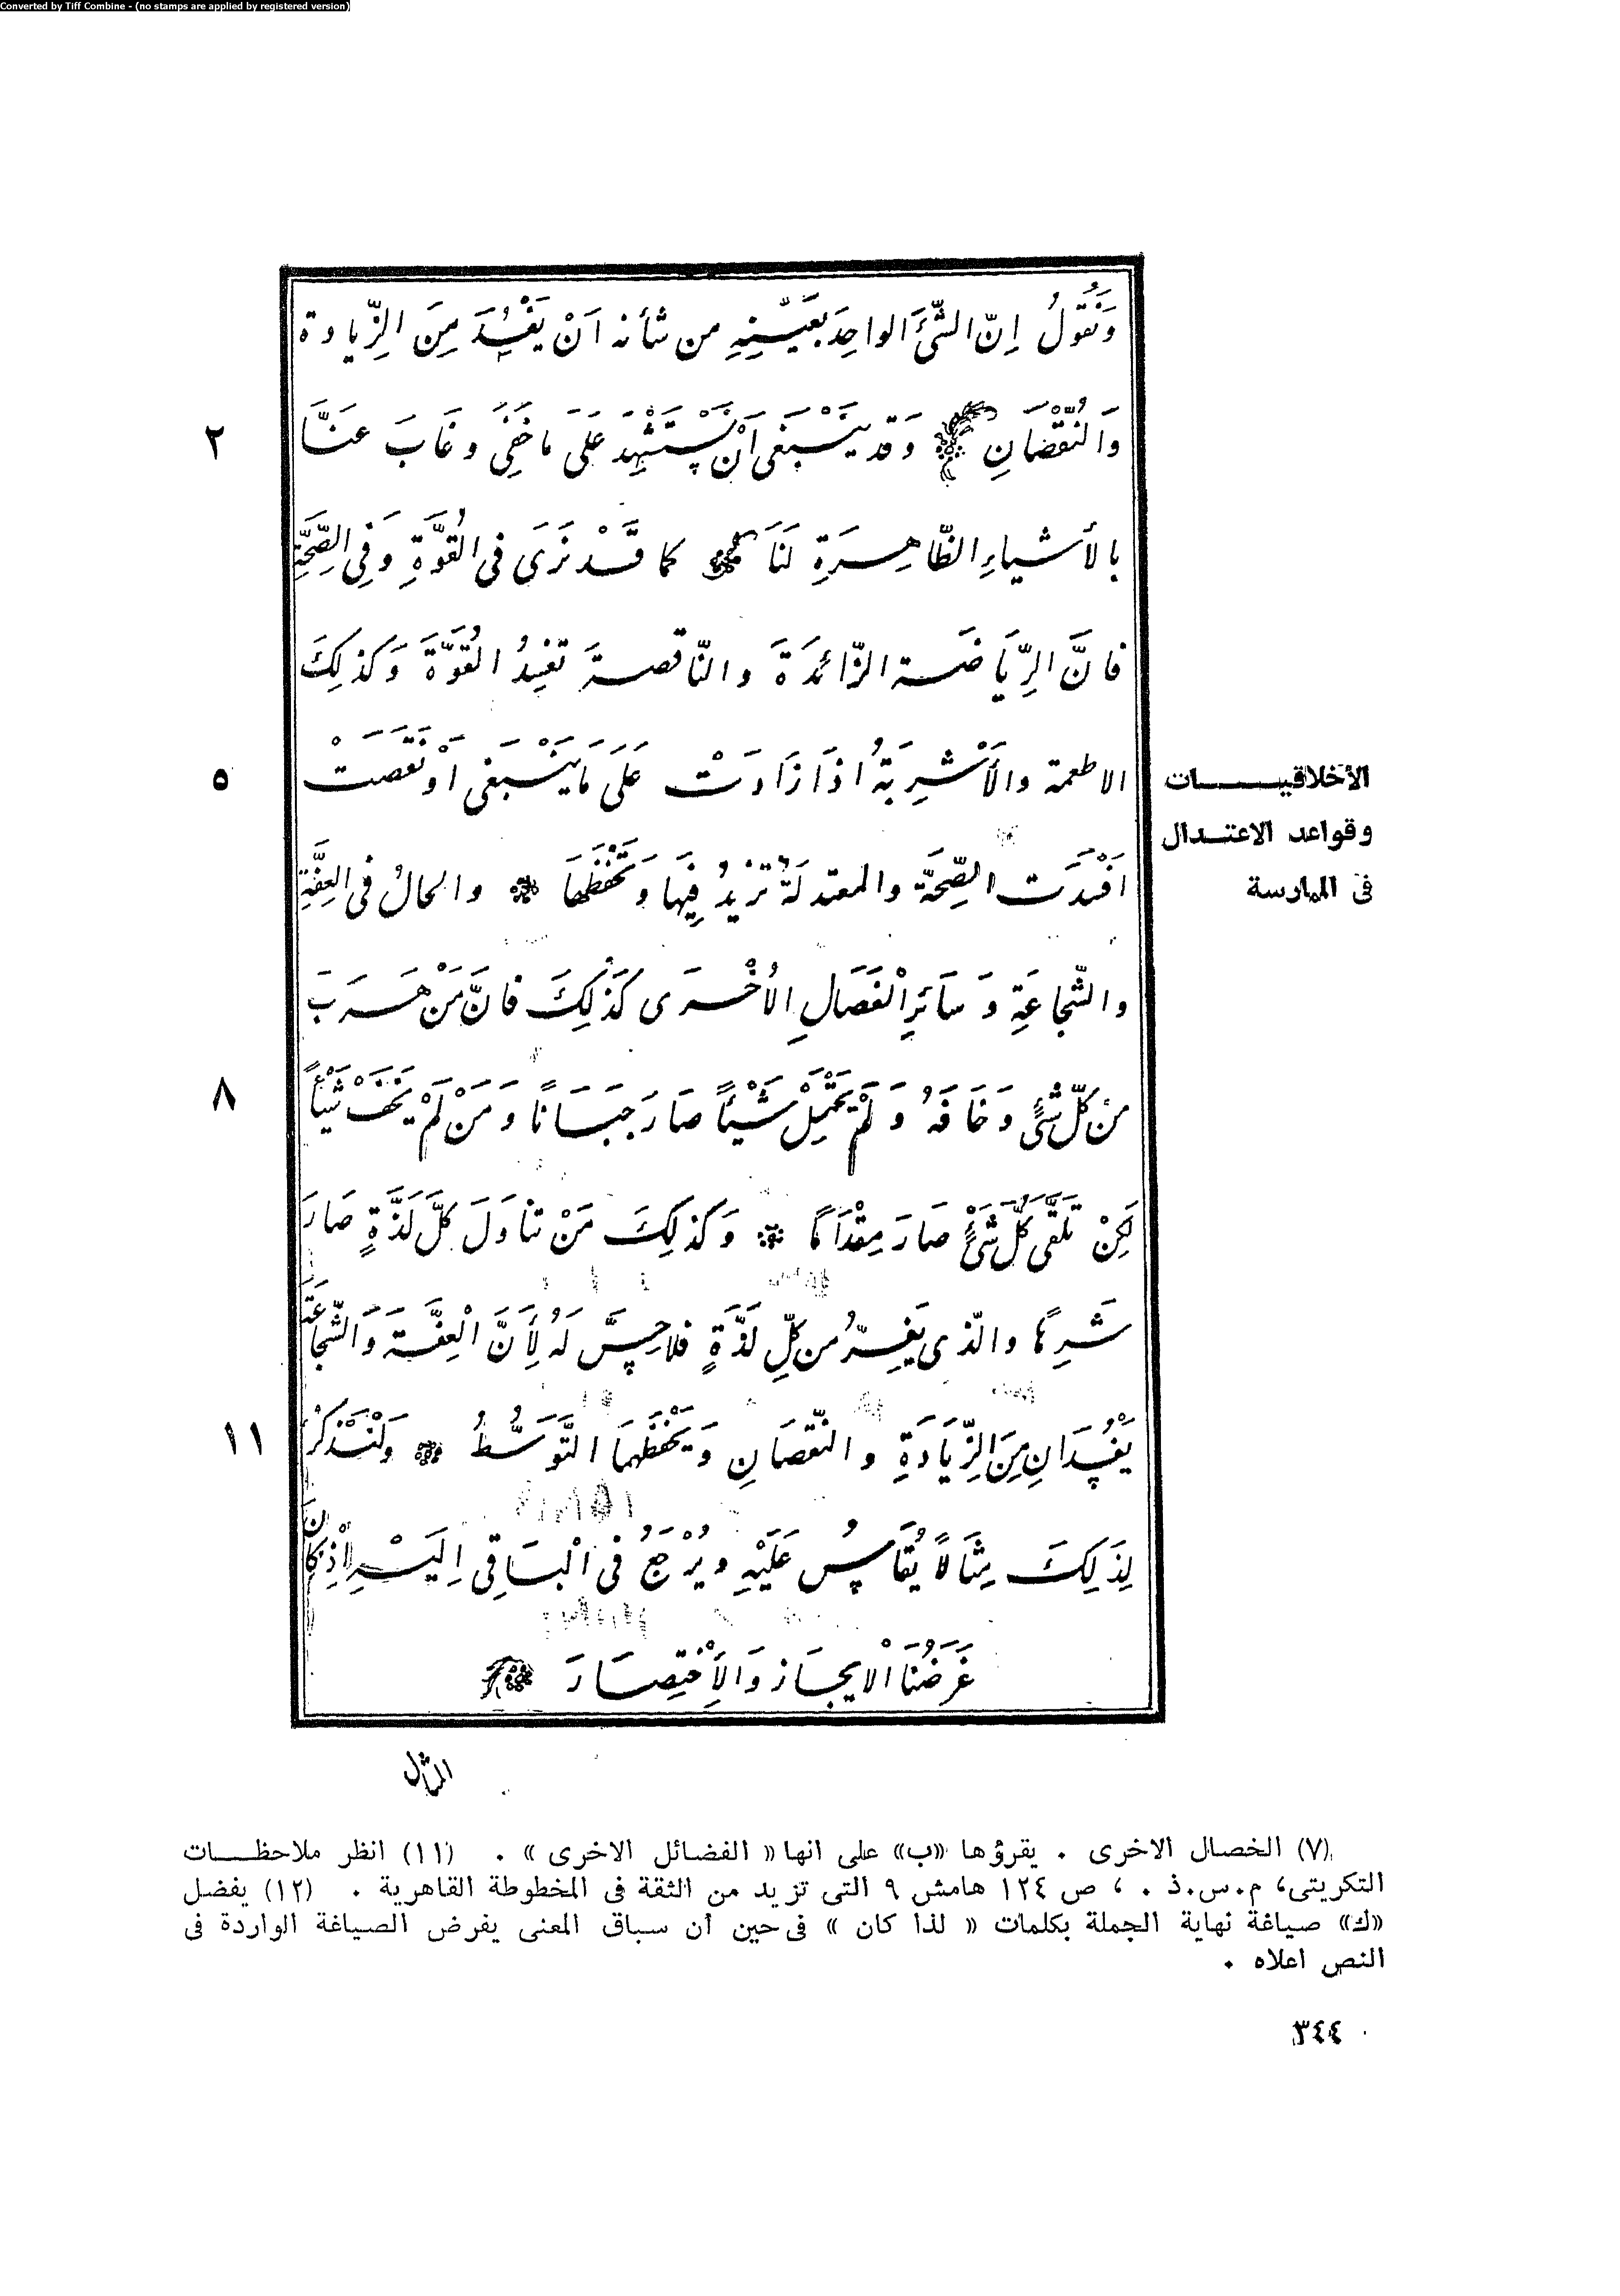 Converted by Tiff Combine - (no stamps are applied by registered version)
وَنَقُولُ إِنّ الشَّئَ الواحِدَ بعَيْنِهِ من شأنه اَنْ يَفْسُدَ مِنَ الزِّيادة
٢
وَالنُّقْصَانِ وَقد يَنْبَغى اَنْ يَسْتَشْهِدَ عَلىَ ما خَفِىَ وغَابَ عنَّا
بالأشياءِ الظّاهِرَةِ لنَا كما قَدْ نَرَى فى القُوَّةِ وَفِى الصِّحَّةِ
فانَّ الرِّيَاضَة الزّائدَةَ والنّاقصةَ تفسِدُ القُوَّةَ وَكذلِكَ
٥
الاطعمة والأَشْرِبَةُ اذَا زَادَتْ عَلىَ مَا يَنْبَغى اَوْ نَقَصَتْ
الأخلاقيات
وقواعد الاعتدال
فى الممارسة
افْسَدَت الصِّحَّة والمعتدلَةُ تزْيدُ فِيَها وَتَحْفَظهَا والحالُ فى العِفَّةِ
والشّجاعَةِ وَسَائرِ الْفَصَالِ الاُخْرَى كَذَلِكَ فانَّ مَنْ هَرَبَ
٨
من كلّ شئٍ وَخَافَهُ وَلَمْ يَحْتَمِلْ شَيْئاً صَارَ جبَانًا وَمَنْ لَمْ يَخَفْ شَيْئاً
لَكِنْ تَلَقَّى كُلَّ شَئٍْ صَارَ مِقْدَامًا وَكذلِكَ مَنْ تناوَلَ كلَّ لَذَّةٍ صَارَ
شَرِهًا والّذى يَفِرُّ من كلّ لَذَّةٍ فلا حِسَّ لهُ لأَنَّ الْعِفَّةَ وَالشّجَاعَةَ
١١
يَفْسُدَانِ مِنَ الزِّيَادَةِ والنّقصَانِ وَيَحْفَظهُمَا التَّوَسُّطُ وَلْنَذْكُرْ
لِذَلِكَ مِثَالاً يُقَاسُ عَلَيْهِ ويُرْجَعُ فى الْبَاقِى اِلَيْهِ إِذْ كَانَ
غَرَضُنَا الايجَازَ وَالاِخْتِصَارَ
المثال
(٧) الخصال الاخرى . يقرؤها «ب» على انها « الفضائل الاخرى » . (١١) انظر ملاحظات
التكريتى، م.س.ذ . ، ص ١٢٤ هامش ٩ التى تزيد من الثقة فى المخطوطة القاهرية . (١٢) يفضل
«ك» صياغة نهاية الجملة بكلمات « لذا كان » فى حين أن سباق المعنى يفرض الصياغة الواردة فى
النص اعلاه .
٣٤٤